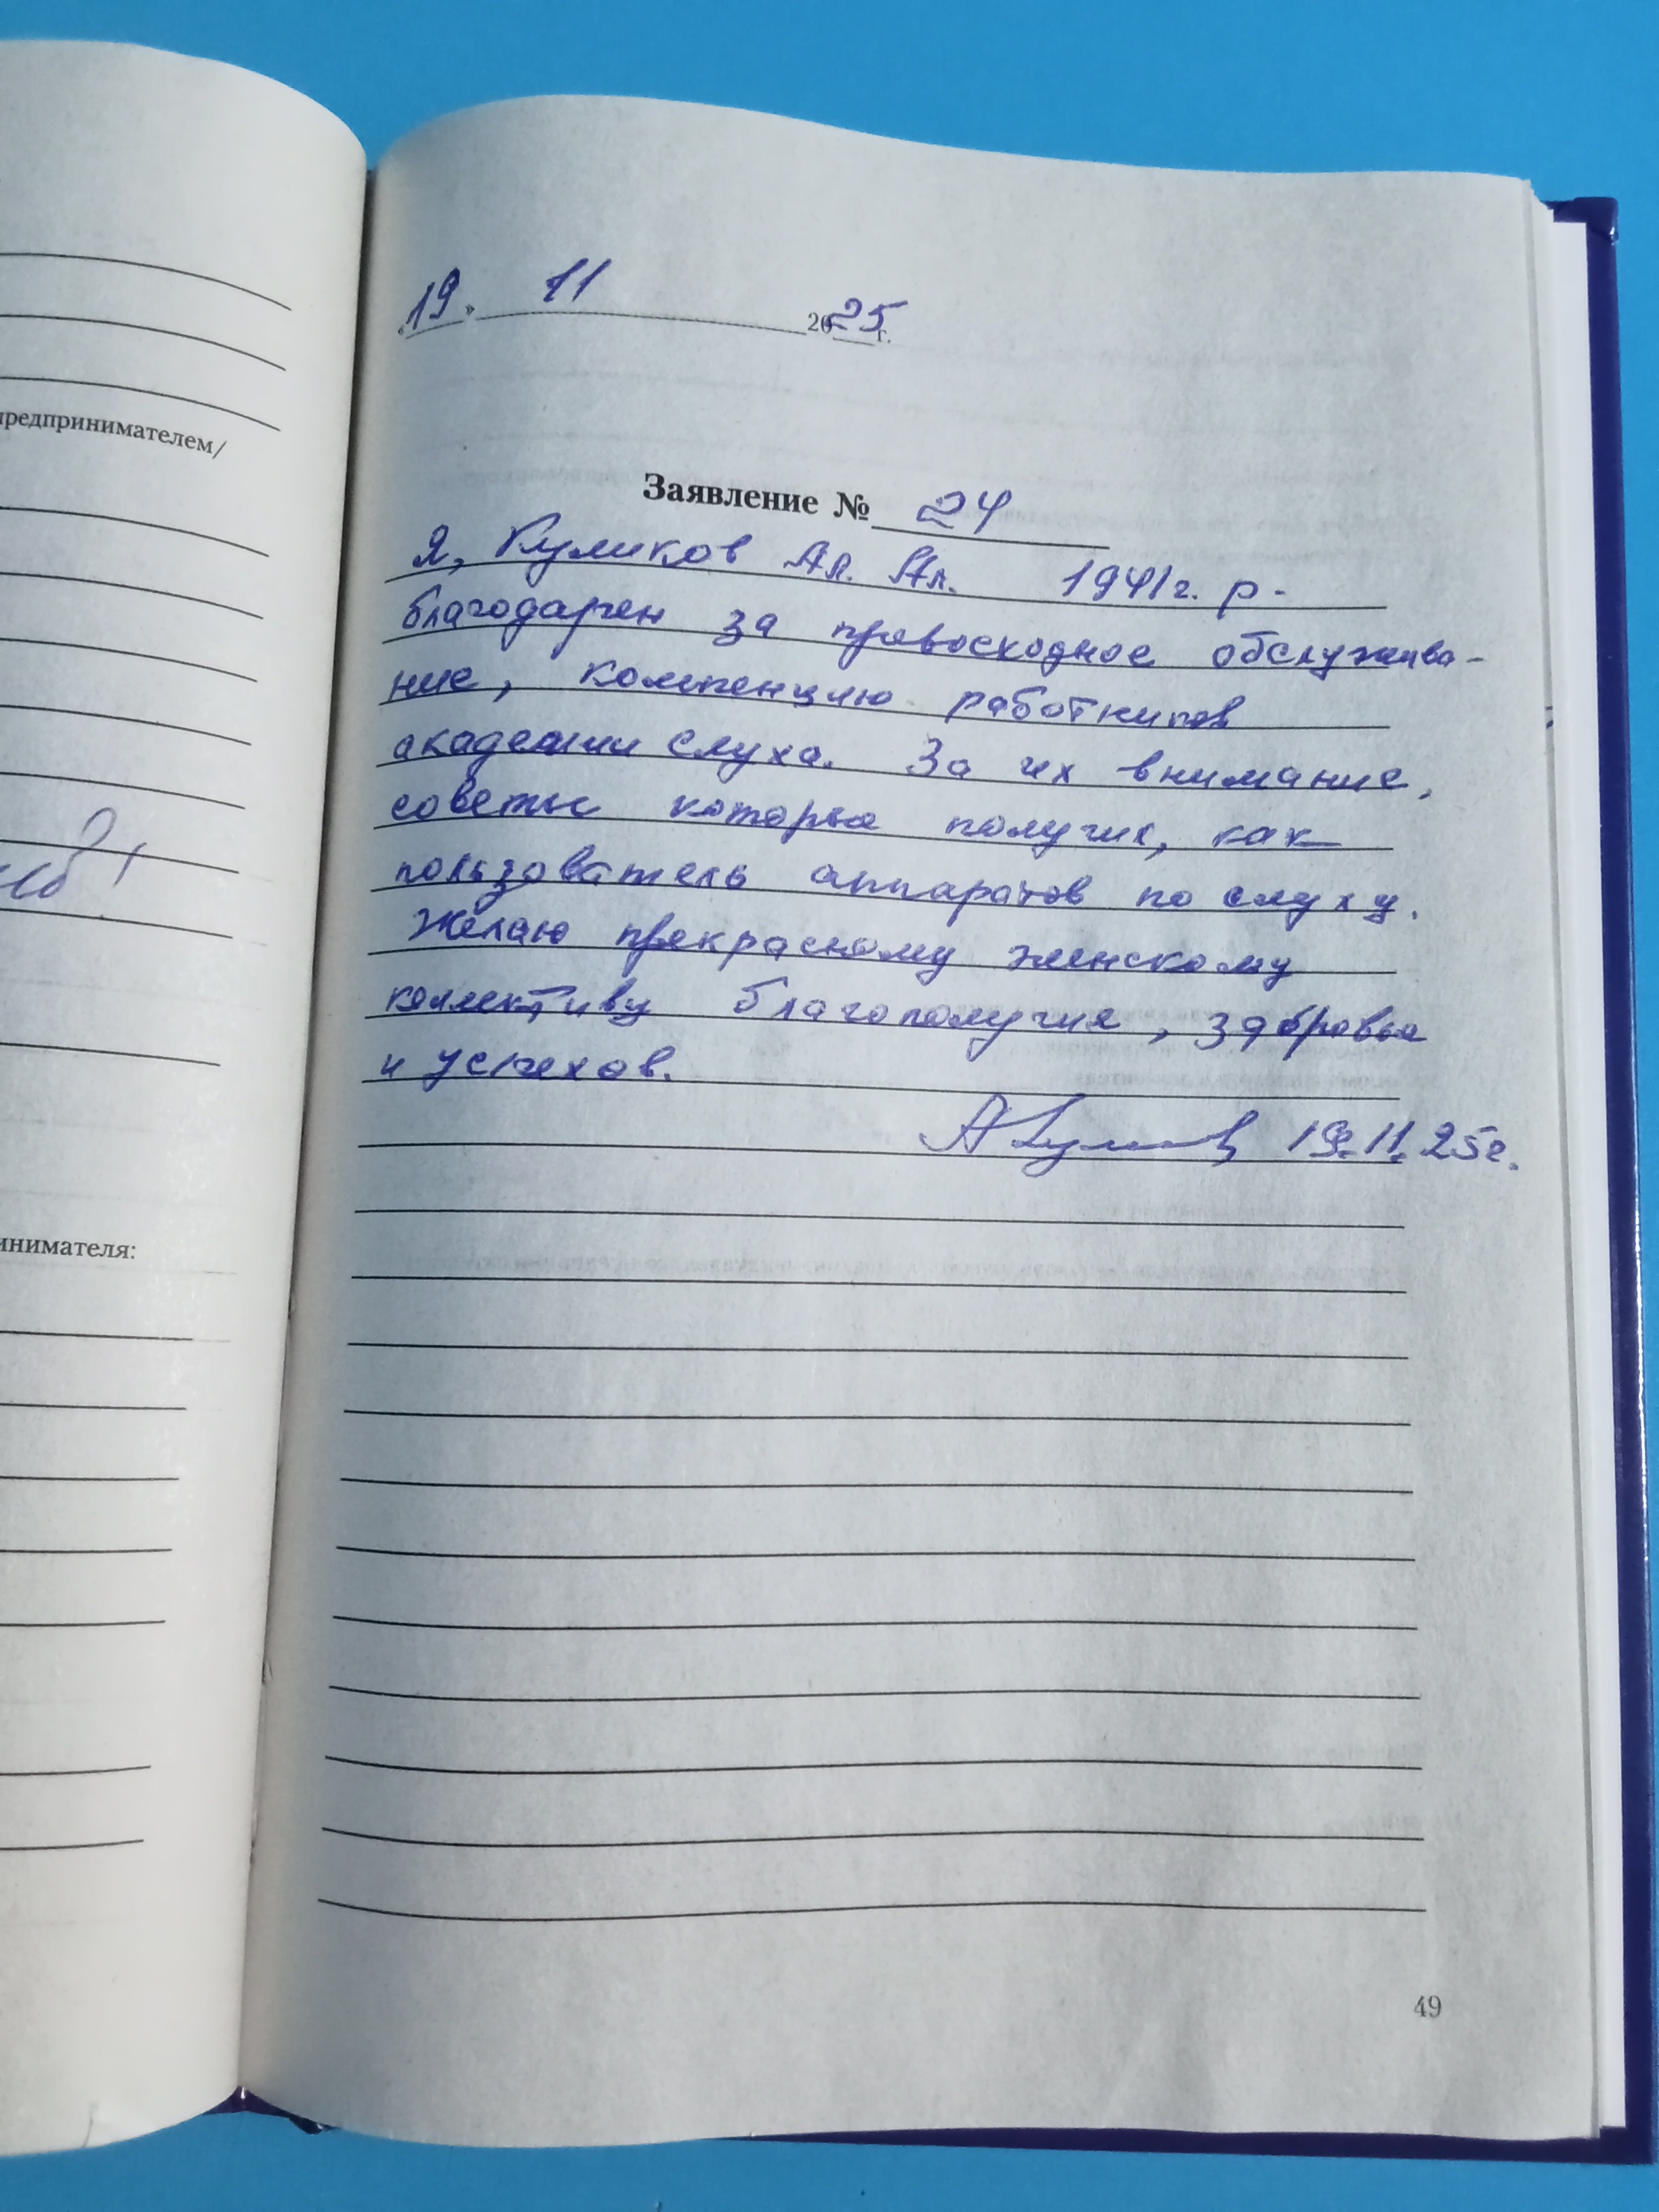 предпринимателем/
инимателя:
«19» 11 2025 г.
Заявление № 24
Я, Куликов Ал. Ал. 1941 г. р.
благодарен за превосходное обслужива-
ние, компенцию работников
академии слуха. За их внимание,
советы которые получил, как
пользователь аппаратов по слуху.
Желаю прекрасному женскому
коллективу благополучия, здоровья
и успехов.
19.11.25г.
49